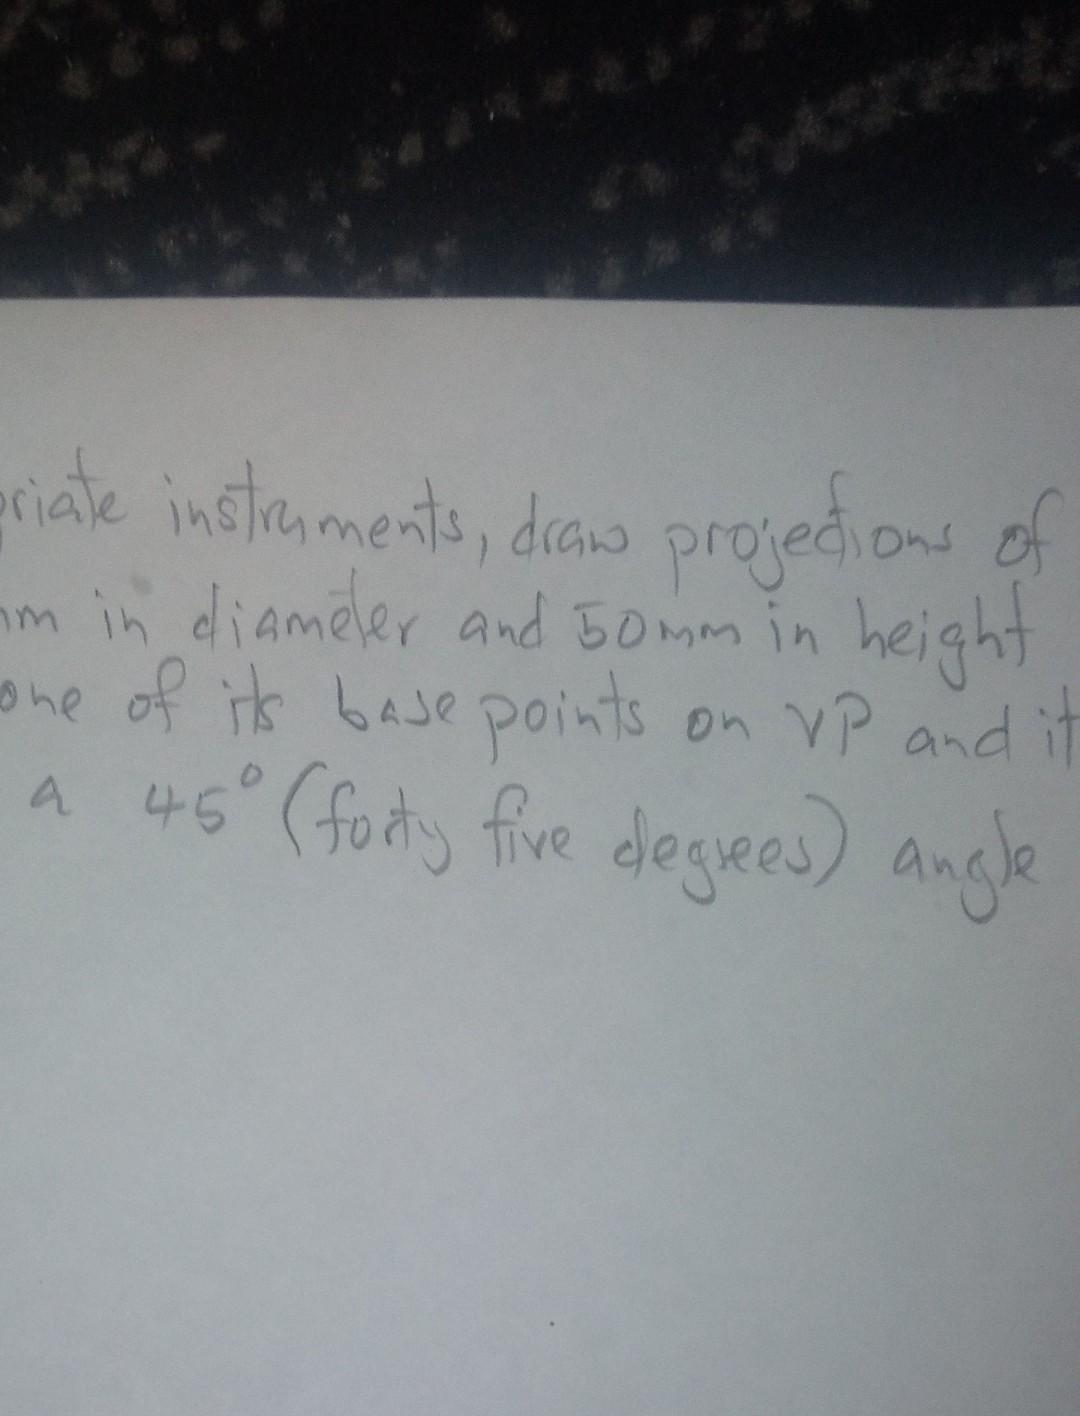 priate instruments, draw projections of
mm in diameter and 50mm in height
one of its base points on VP and it
a 45° (forty five degrees) angle